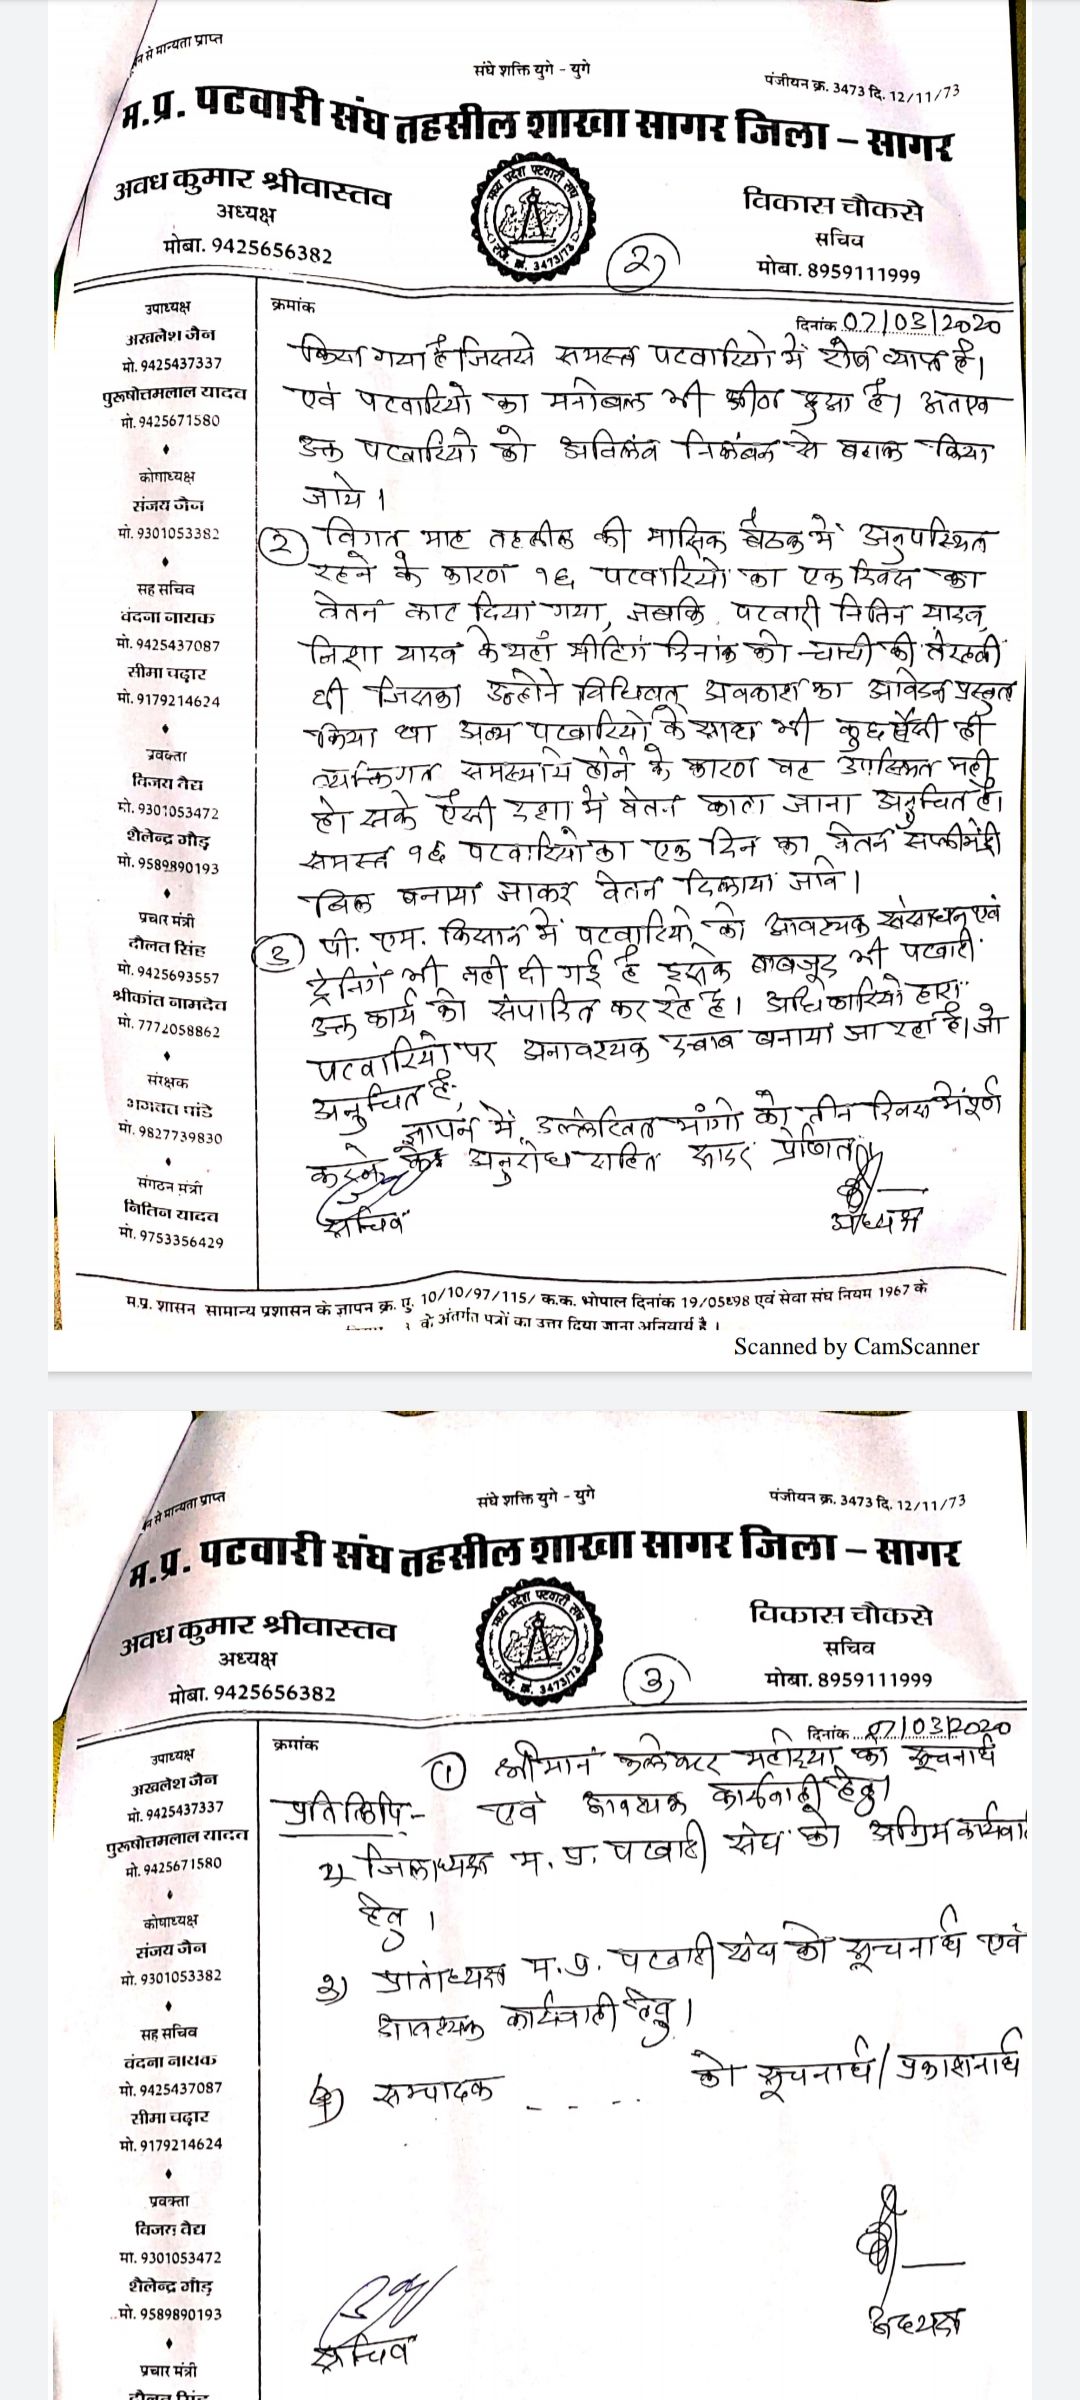 से मान्यता प्राप्त
संघे शक्ति युगे - युगे
पंजीयन क्र. 3473 दि. 12/11/73
म.प्र. पटवारी संघ तहसील शाखा सागर जिला – सागर
अवध कुमार श्रीवास्तव
अध्यक्ष
मोबा. 9425656382
मध्य प्रदेश पटवारी संघ
रजि. क्रं. 3473/73
२
विकास चौकसे
सचिव
मोबा. 8959111999
उपाध्यक्ष
अखलेश जैन
मो. 9425437337
पुरूषोत्तमलाल यादव
मो. 9425671580
कोषाध्यक्ष
संजय जैन
मो. 9301053382
सह सचिव
वंदना नायक
मो. 9425437087
सीमा चढ़ार
मो. 9179214624
प्रवक्ता
विजय वैद्य
मो. 9301053472
शैलेन्द्र गौड़
मो. 9589890193
प्रचार मंत्री
दौलत सिंह
मो. 9425693557
श्रीकांत नामदेव
मो. 7772058862
संरक्षक
भागवत पांडे
मो. 9827739830
संगठन मंत्री
नितिन यादव
मो. 9753356429
क्रमांक
दिनांक 07/03/2020
किया गया है जिससे समस्त पटवारियो में रोष व्याप्त है।
एवं पटवारियो का मनोबल भी क्षीण हुआ है। अतएव
उक्त पटवारियो को अविलंब निलंबन से बहाल किया
जाये ।
२ विगत माह तहसील की मासिक बैठक में अनुपस्थित
रहने के कारण १६ पटवारियों का एक दिवस का
वेतन काट दिया गया, जबकि पटवारी नितिन यादव,
निशा यादव के यहाँ मीटिंग दिनांक को चाची की तेरहवीं
थी जिसका उन्होंने विधिवत् अवकाश का आवेदन प्रस्तुत
किया था अन्य पटवारियों के साथ भी कुछ ऐसी ही
व्यक्तिगत समस्याये होने के कारण वह उपस्थित नही
हो सके ऐसी दशा में वेतन काटा जाना अनुचित है।
समस्त १६ पटवारियो का एक दिन का वेतन सप्लीमेंट्री
बिल बनाया जाकर वेतन दिलाया जावे।
३ पी. एम. किसान में पटवारियो को आवश्यक संसाधन एवं
ट्रेनिंग भी नही दी गई है इसके बाबजूद भी पटवारी
उक्त कार्य को संपादित कर रहे है। अधिकारियो द्वारा
पटवारियो पर अनावश्यक दबाब बनाया जा रहा है। जो
अनुचित है,
ज्ञापन में उल्लेखित मांगो को तीन दिवस में पूर्ण
करने के अनुरोध सहित सादर प्रेषित
सचिव
अध्यक्ष
म.प्र. शासन सामान्य प्रशासन के ज्ञापन क्र. ए. 10/10/97/115/ क.क. भोपाल दिनांक 19/05898 एवं सेवा संघ नियम 1967 के
के अंतर्गत पत्रों का उत्तर दिया जाना अनिवार्य है ।
Scanned by CamScanner
से मान्यता प्राप्त
संघे शक्ति युगे - युगे
पंजीयन क्र. 3473 दि. 12/11/73
म.प्र. पटवारी संघ तहसील शाखा सागर जिला – सागर
अवध कुमार श्रीवास्तव
अध्यक्ष
मोबा. 9425656382
मध्य प्रदेश पटवारी संघ
रजि. क्रं. 3473/73
३
विकास चौकसे
सचिव
मोबा. 8959111999
उपाध्यक्ष
अखलेश जैन
मो. 9425437337
पुरूषोत्तमलाल यादव
मो. 9425671580
कोषाध्यक्ष
संजय जैन
मो. 9301053382
सह सचिव
वंदना नायक
मो. 9425437087
सीमा चढ़ार
मो. 9179214624
प्रवक्ता
विजय वैद्य
मा. 9301053472
शैलेन्द्र गौड़
मो. 9589890193
प्रचार मंत्री
दौलत सिंह
क्रमांक
दिनांक 07/03/2020
१ श्रीमान कलेक्टर महोदया को सूचनार्थ
प्रतिलिपि - एवं आवश्यक कार्यवाही हेतु।
२) जिलाध्यक्ष म. प्र. पटवारी संघ को अग्रिम कार्यवा
हेतु ।
३) प्रांताध्यक्ष म. प्र. पटवारी संघ को सूचनार्थ एवं
आवश्यक कार्यवाही हेतु।
४) सम्पादक - - - - को सूचनार्थ / प्रकाशनार्थ
सचिव
अध्यक्ष